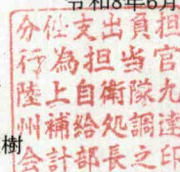 令和8年6月
分任支出負担
行為担当官
陸上自衛隊九
州補給処調達
会計部長之印
樹